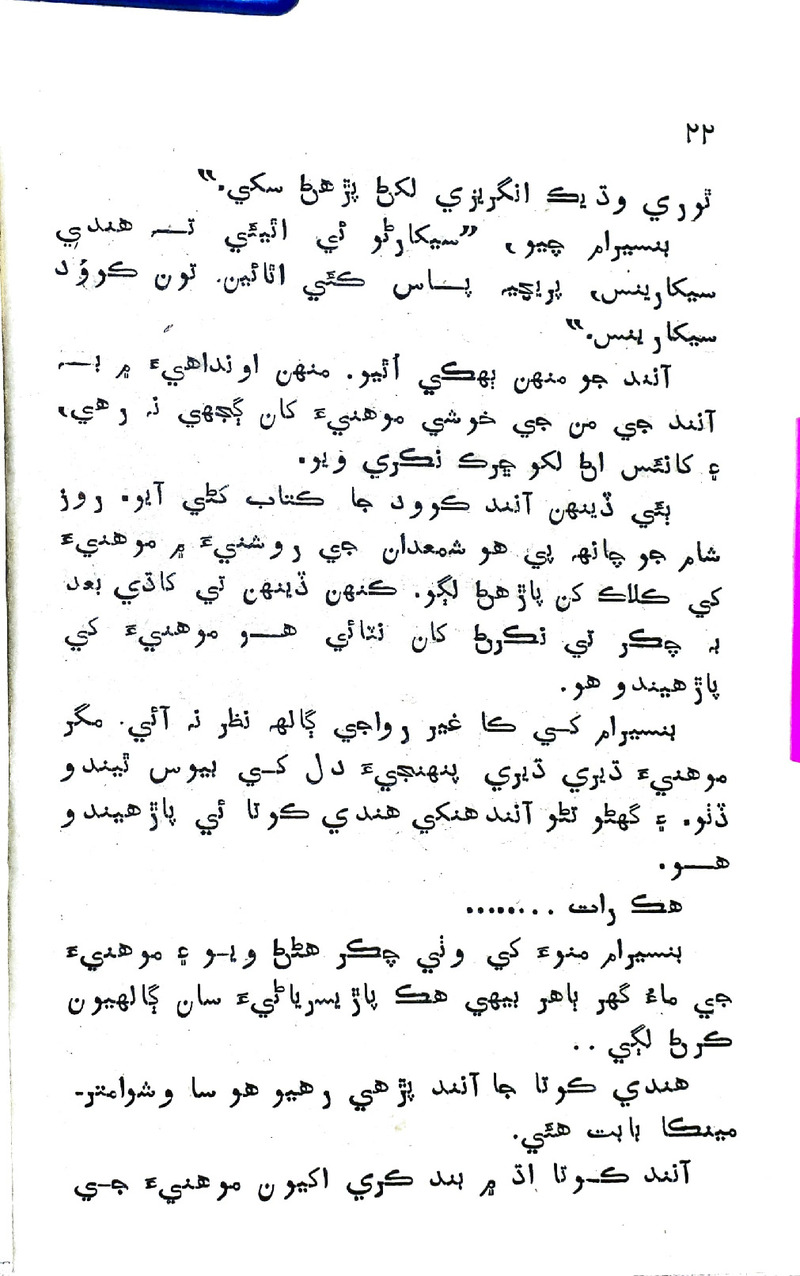 ٢٢
ٿوري وڌيڪ انگريزي لکڻ پڙهڻ سکي.“
بنسيرام چيو، ”سيکارڻو ئي اٿيئي تـہ هندي
سيکارينس، پريڇيہ پـاس ڪئي اٿائين. تون ڪووُد
سيکارينس.“
آنند جو منهن ٻهڪي اُٿيو. منهن اونداهيءَ ۾ بـہ
آنند جي من جي خوشي موهنيءَ کان ڳجهي نہ رهي،
۽ کانئس اڻ لکو ڇرڪ نڪري ويو.
ٻئي ڏينهن آنند ڪوود جا ڪتاب کڻي آيو. روز
شام جو چانهہ پي هو شمعدان جي روشنيءَ ۾ موهنيءَ
کي ڪلاڪ کن پاڙهڻ لڳو. ڪنهن ڏينهن تي کاڌي بعد
بہ چڪر تي نڪرڻ کان نٽائي هـو موهنيءَ کي
پاڙهيندو هو.
بنسيرام کي ڪا غير رواجي ڳالهہ نظر نہ آئي. مگر
موهنيءَ ڌيري ڌيري پنهنجيءَ دل کي بيوس ٿيندو
ڏٺو. ۽ گهڻو تڻو آنند هنکي هندي ڪوتا ئي پاڙهيندو
هـو.
هڪ رات ........
بنسيرام منوءَ کي وٺي چڪر هڻڻ ويـو ۽ موهنيءَ
جي ماءُ گهر ٻاهر بيهي هڪ پاڙيسرياڻيءَ سان ڳالهيون
ڪرڻ لڳي ..
هندي ڪوتا جا آنند پڙهي رهيو هو سا وشوامتر-
مينڪا بابت هئي.
آنند ڪـوتا اڌ ۾ بند ڪري اکيون موهنيءَ جـي